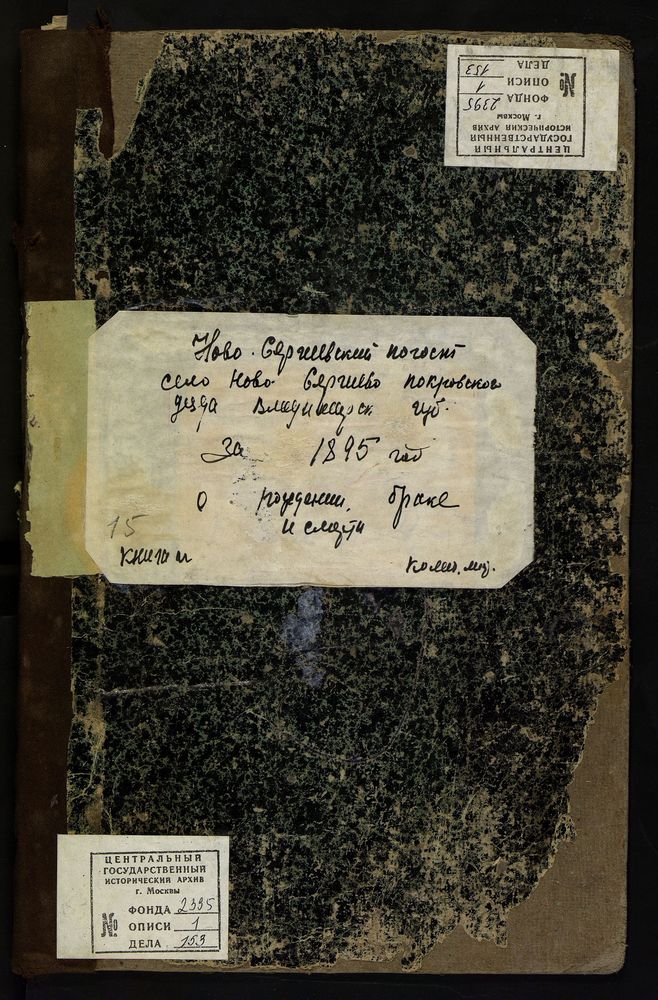 ЦЕНТРАЛЬНЫЙ
ГОСУДАРСТВЕННЫЙ
ИСТОРИЧЕСКИЙ АРХИВ
г. Москвы
№
ФОНДА 2395
ОПИСИ 1
ДЕЛА 153
Ново-Сергиевский погост
село Ново-Сергиево Покровского
уезда Владимирск. губ.
За 1895 год
О рождении, браке
и смерти
15
Книга
ЦЕНТРАЛЬНЫЙ
ГОСУДАРСТВЕННЫЙ
ИСТОРИЧЕСКИЙ АРХИВ
г. Москвы
№
ФОНДА 2395
ОПИСИ 1
ДЕЛА 153